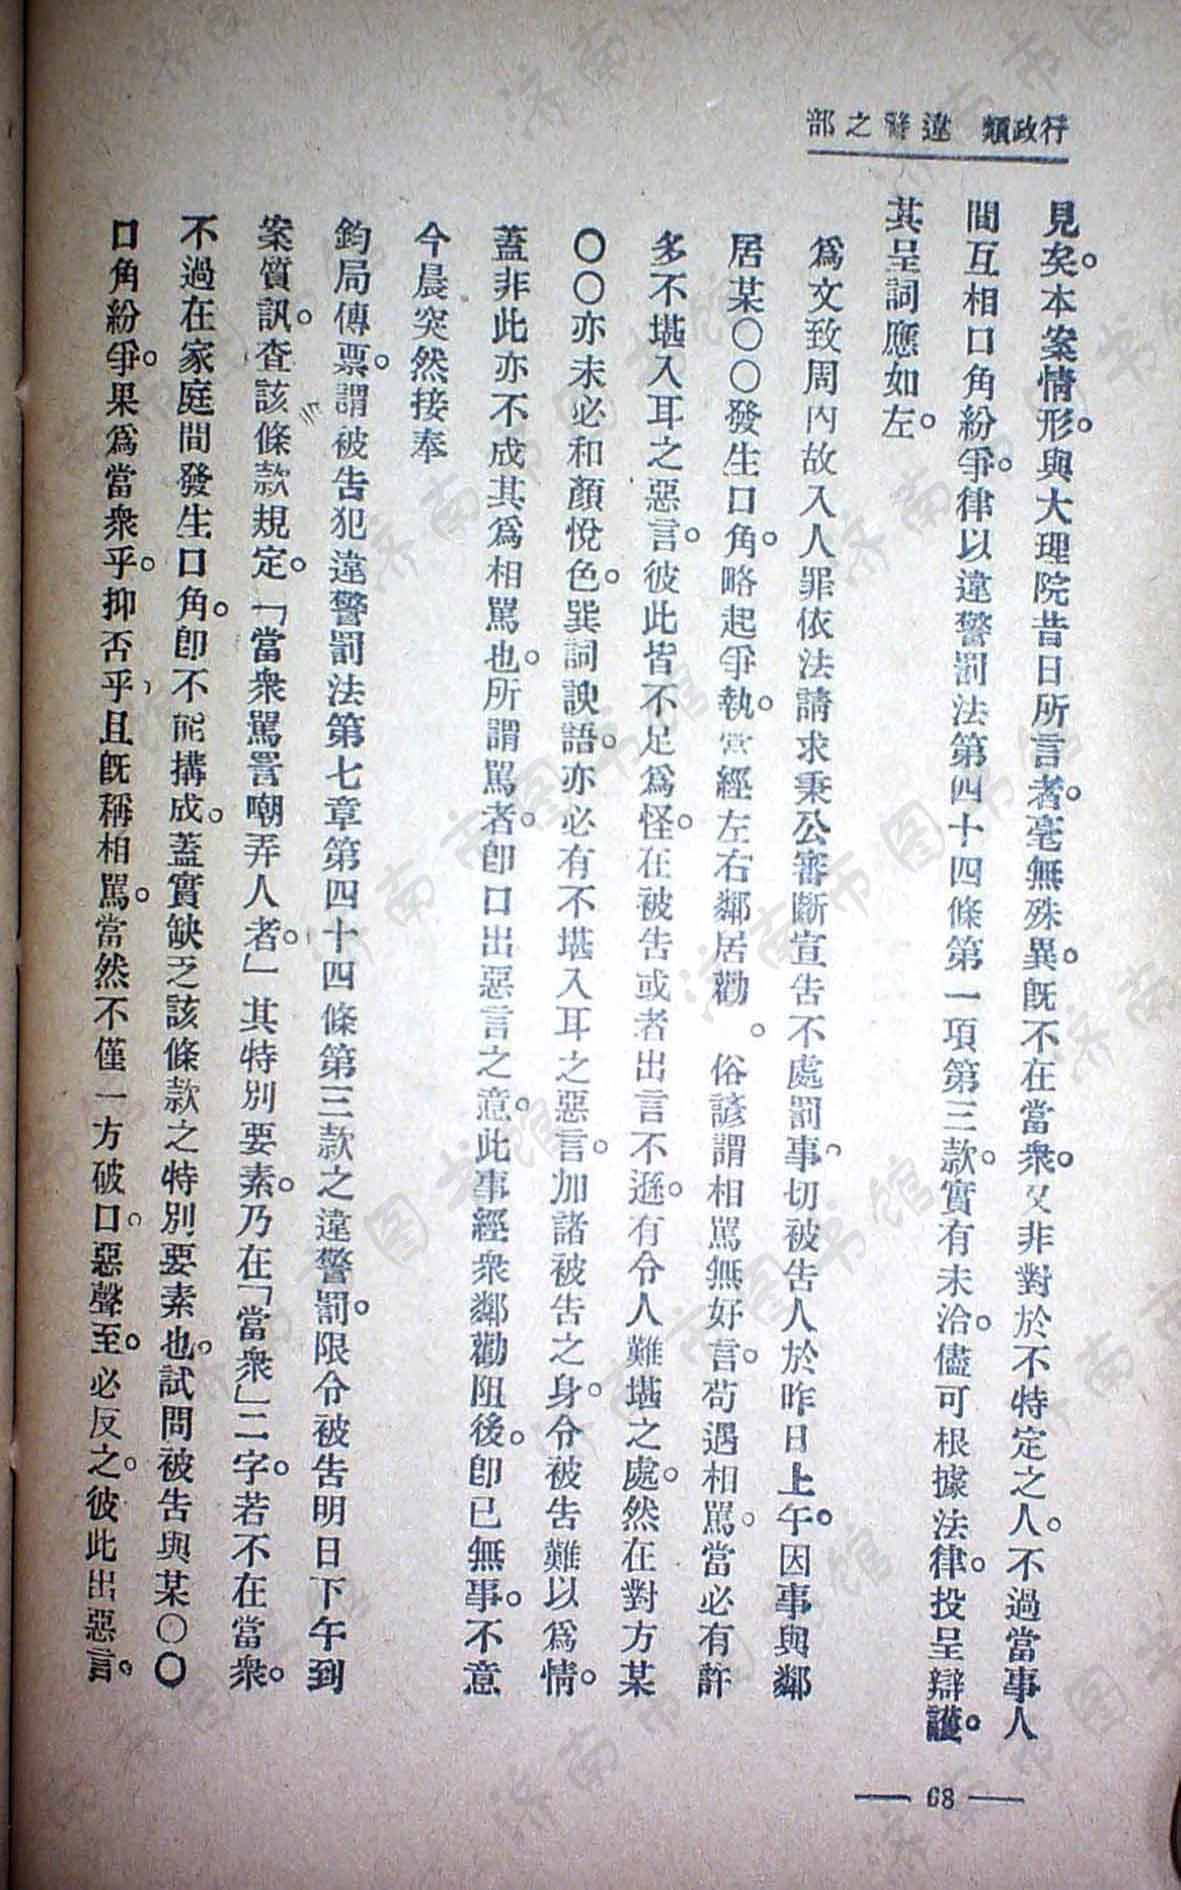 行政類 違警之部
見矣。本案情形。與大理院昔日所言者。毫無殊異。既不在當衆。又非對於不特定之人。不過當事人
間互相口角紛爭。律以違警罰法第四十四條第一項第三款。實有未洽。儘可根據法律。投呈辯護。
其呈詞應如左。
爲文致周內故入人罪依法請求秉公審斷宣告不處罰事。切被告人於昨日上午。因事與鄰
居某〇〇發生口角。略起爭執。當經左右鄰居勸。俗諺謂相罵無好言。苟遇相罵。當必有許
多不堪入耳之惡言。彼此皆不足爲怪。在被告或者出言不遜。有令人難堪之處。然在對方某
〇〇亦未必和顏悅色。巽詞諛語。亦必有不堪入耳之惡言。加諸被告之身。令被告難以爲情。
蓋非此亦不成其爲相罵也。所謂罵者。卽口出惡言之意。此事經衆鄰勸阻後。卽已無事。不意
今晨突然接奉
鈞局傳票。謂被告犯違警罰法第七章第四十四條第三款之違警罰。限令被告明日下午到
案質訊。查該條款規定。「當衆罵詈嘲弄人者。」其特別要素。乃在「當衆」二字。若不在當衆。
不過在家庭間發生口角。卽不能構成。蓋實缺乏該條款之特別要素也。試問被告與某〇〇
口角紛爭。果爲當衆乎。抑否乎、且既稱相罵。當然不僅一方破口。惡聲至。必反之。彼此出惡言。
— 68 —
济南市图书馆